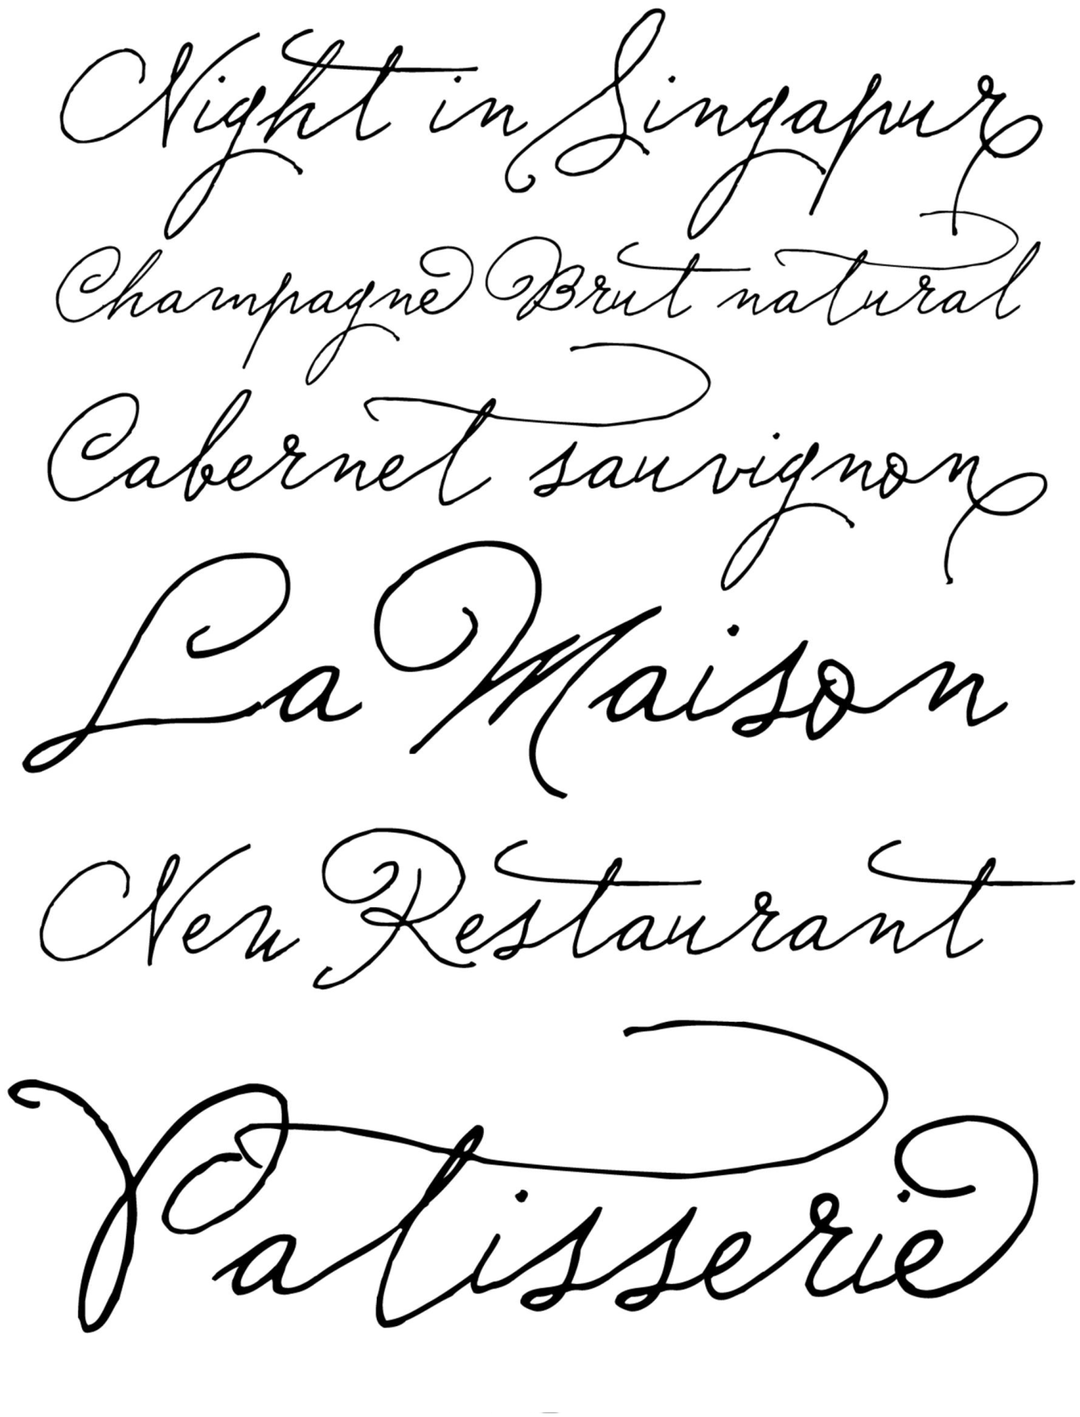 Night in Singapur
Champagne Brut natural
Cabernet sauvignon
La Maison
New Restaurant
Patisserie